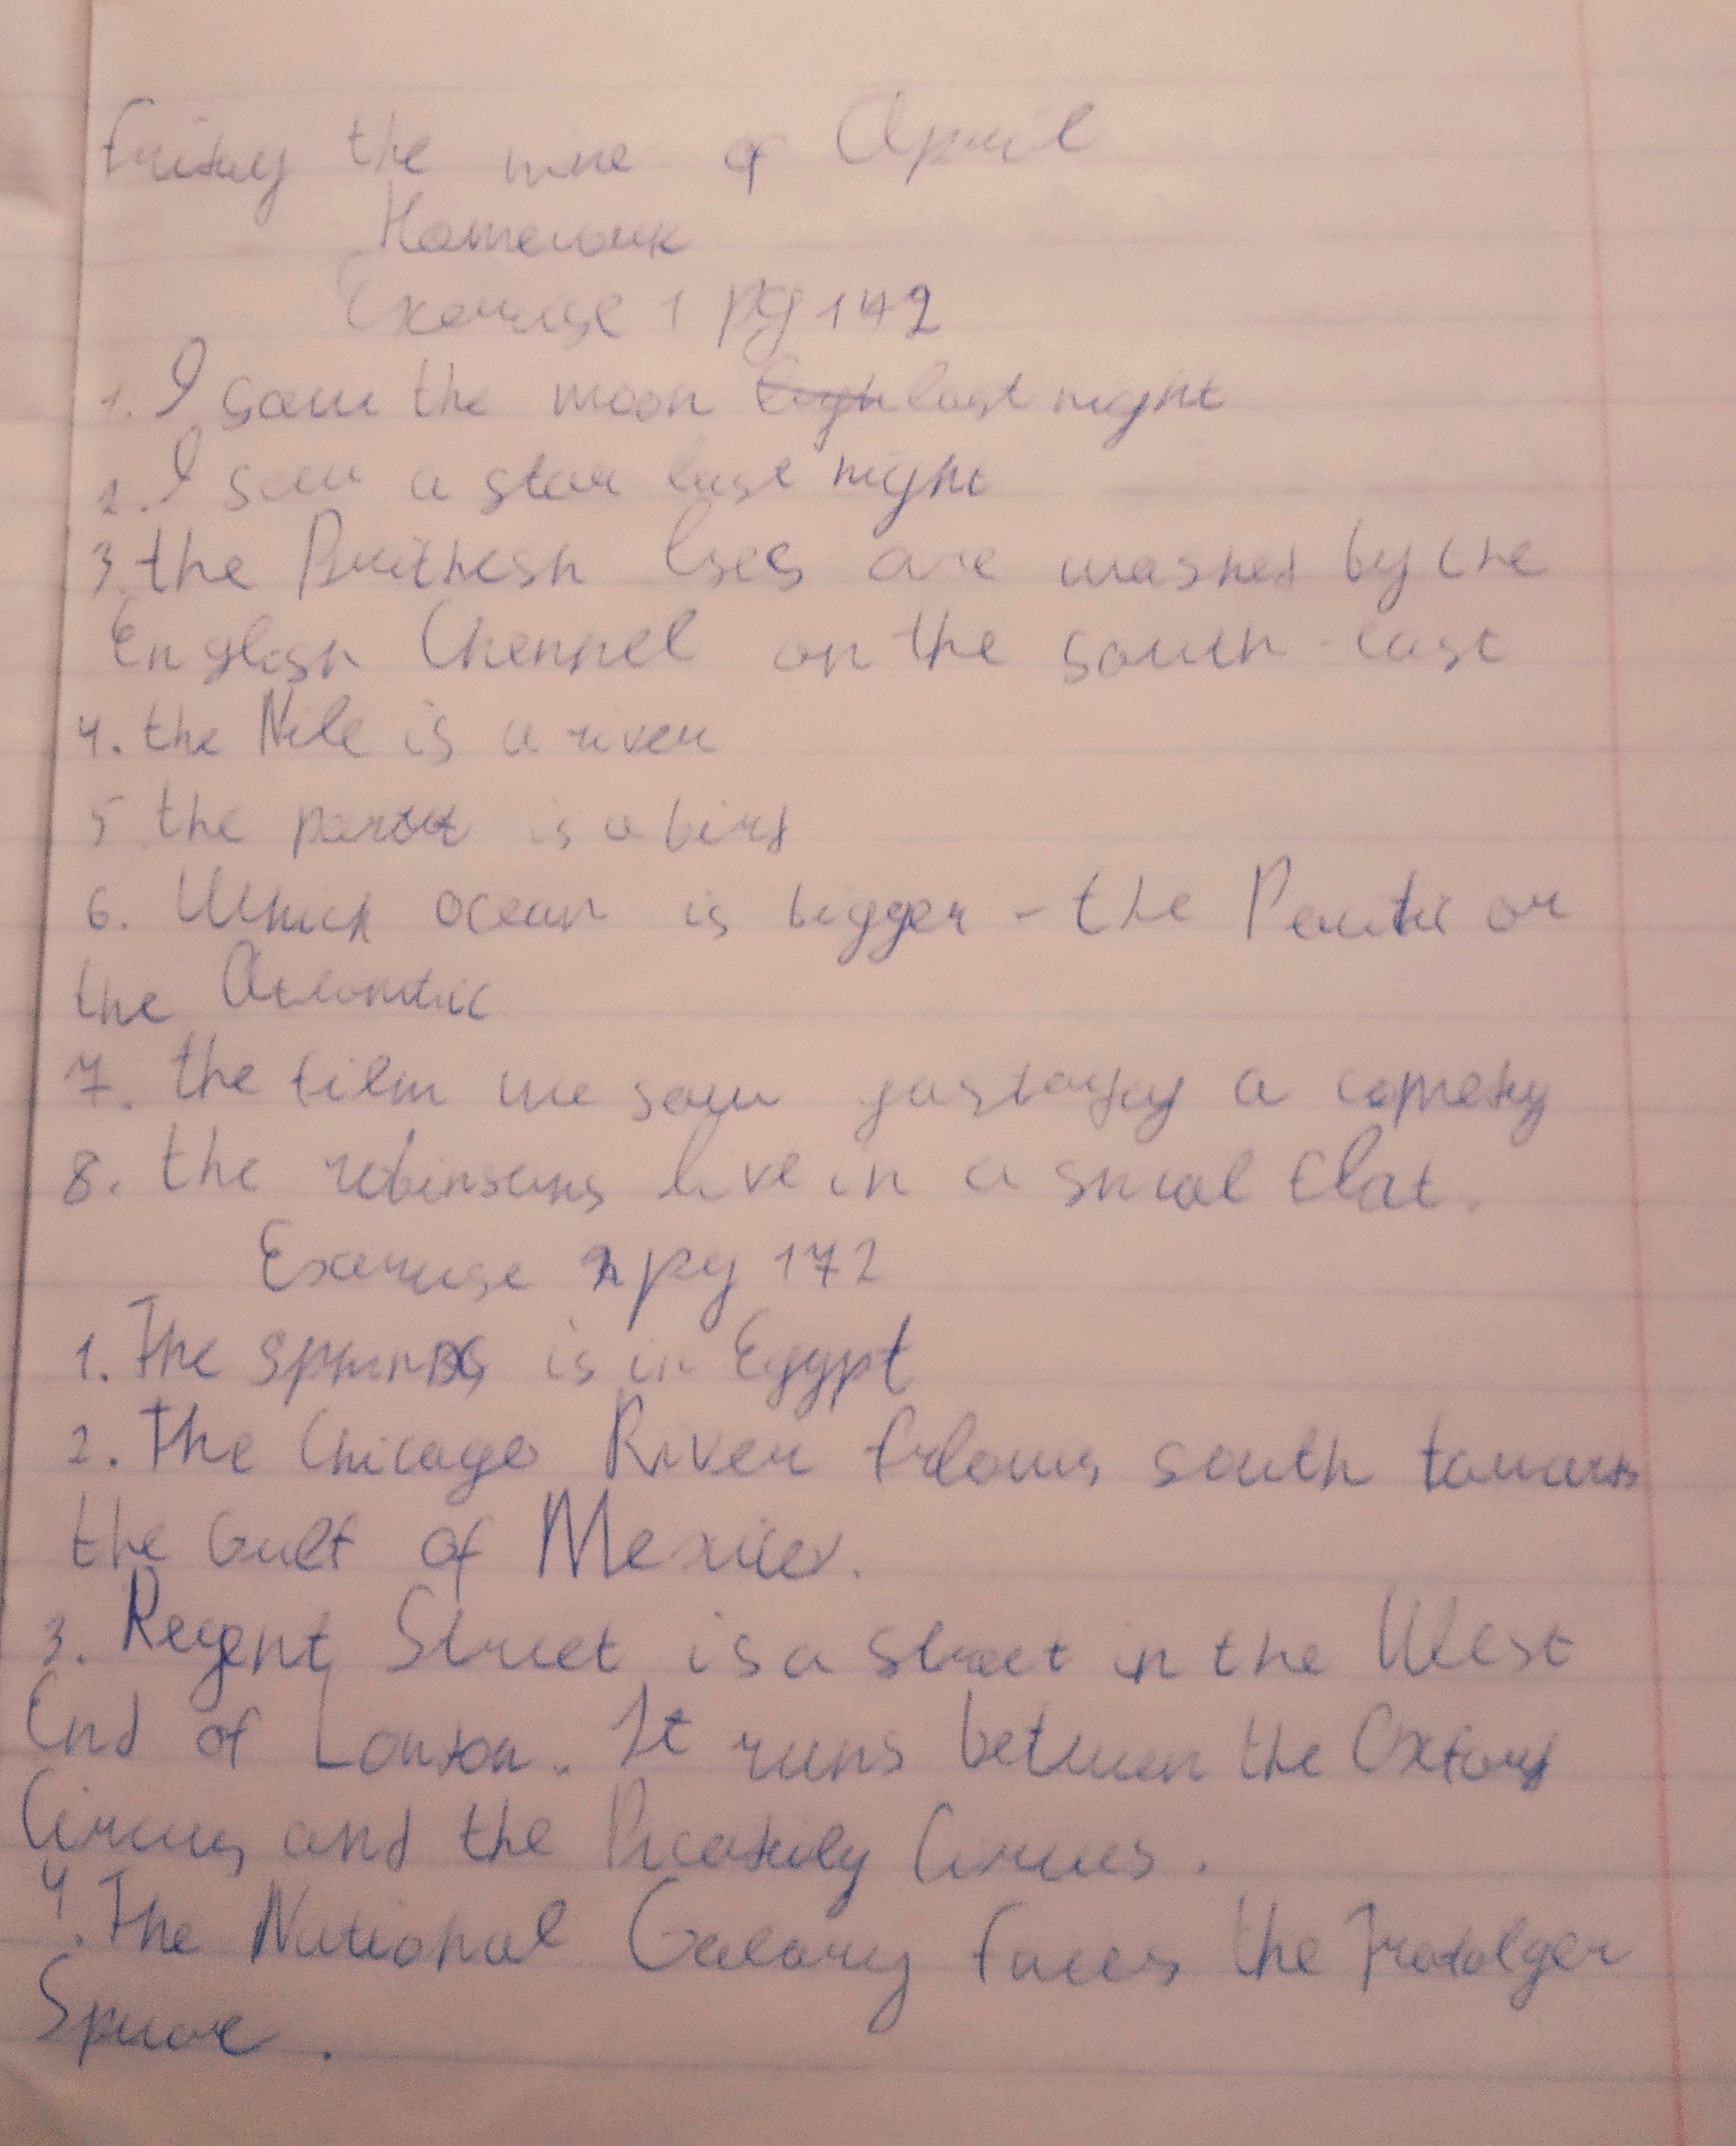 Friday the nine of April
Homework
Exercise 1 pg 142
1. I saw the moon last night
2. I saw a star last night
3. the Brithesh Ises are washed by the
English Chennel on the south-east
4. the Nile is a river
5 the parrot is a bird
6. Which ocean is bigger - the Pacific or
the Atlantic
7. the film we saw a comedy
8. the robinsons live in a smal flat.
Exercise 2 pg 172
1. The is in Egypt
2. The Chicago River south towards
the Gulf of Mexico.
3. Regent Street is a street in the West
End of London. It runs between the Oxford
Circus and the Picadily Circues.
4. The National Galary faces the Trafalger
Square.